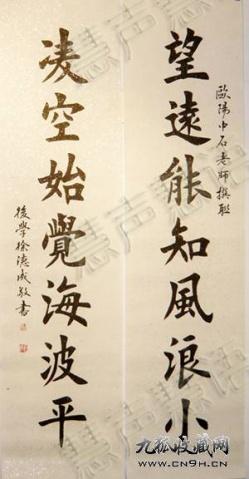 歐陽中石老師撰聯
望遠能知風浪小
凌空始覺海波平
後學徐德成敬書
慧声慧语
九狐收藏网
www.CN9H.CN